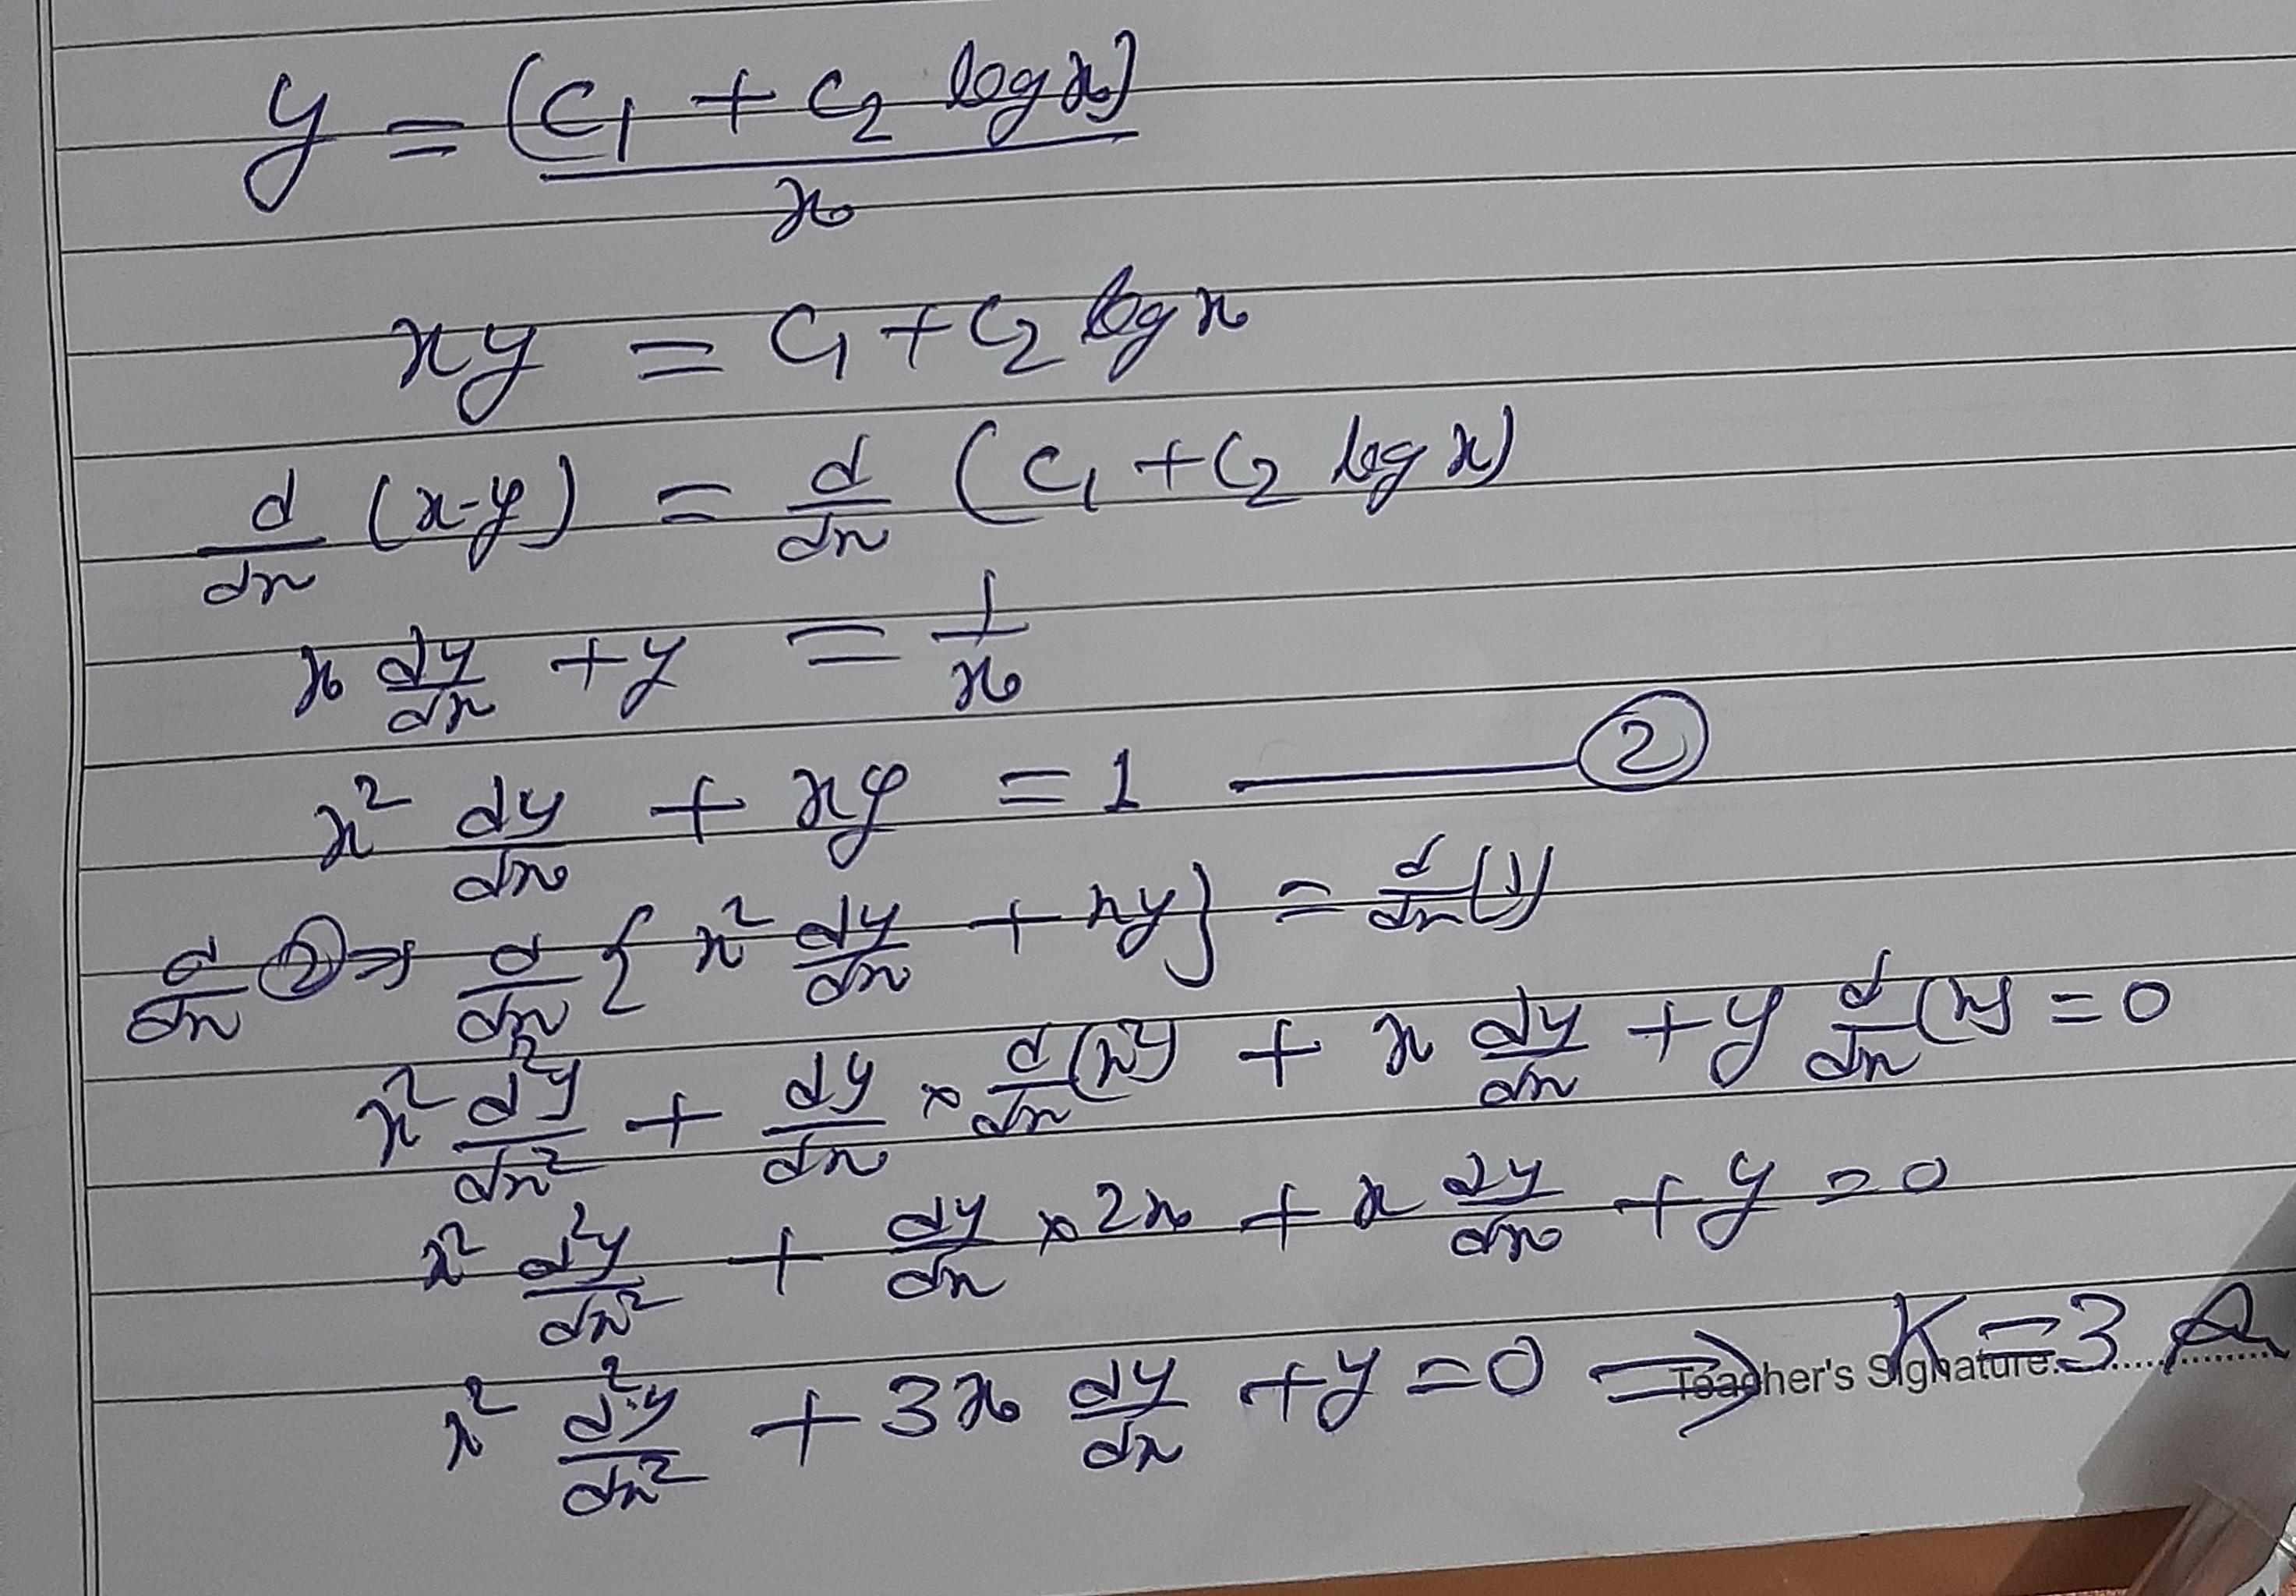 y = (C₁ + C₂ log x) / x
xy = C₁ + C₂ log x
d/dx (x·y) = d/dx (C₁ + C₂ log x)
x dy/dx + y = 1/x
x² dy/dx + xy = 1 ——— ②
d/dx ② ⇒ d/dx { x² dy/dx + xy } = d/dx (1)
x² d²y/dx² + dy/dx × d/dx (x²) + x dy/dx + y d/dx (x) = 0
x² d²y/dx² + dy/dx × 2x + x dy/dx + y = 0
x² d²y/dx² + 3x dy/dx + y = 0 ⇒ K = 3
Teacher's Signature: